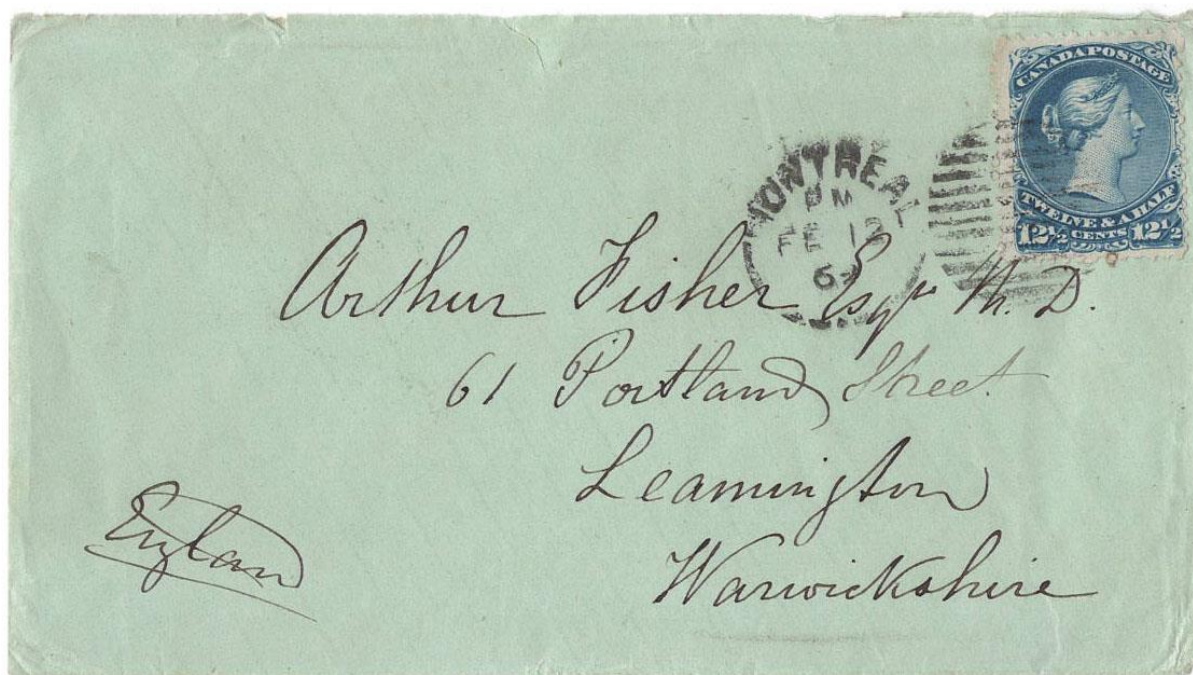 CANADA POSTAGE
TWELVE & A HALF
12½ CENTS 12½
MONTREAL
PM
FE 12
Arthur Fisher Esqre M.D.
61 Portland Street
Leamington
Warwickshire
England